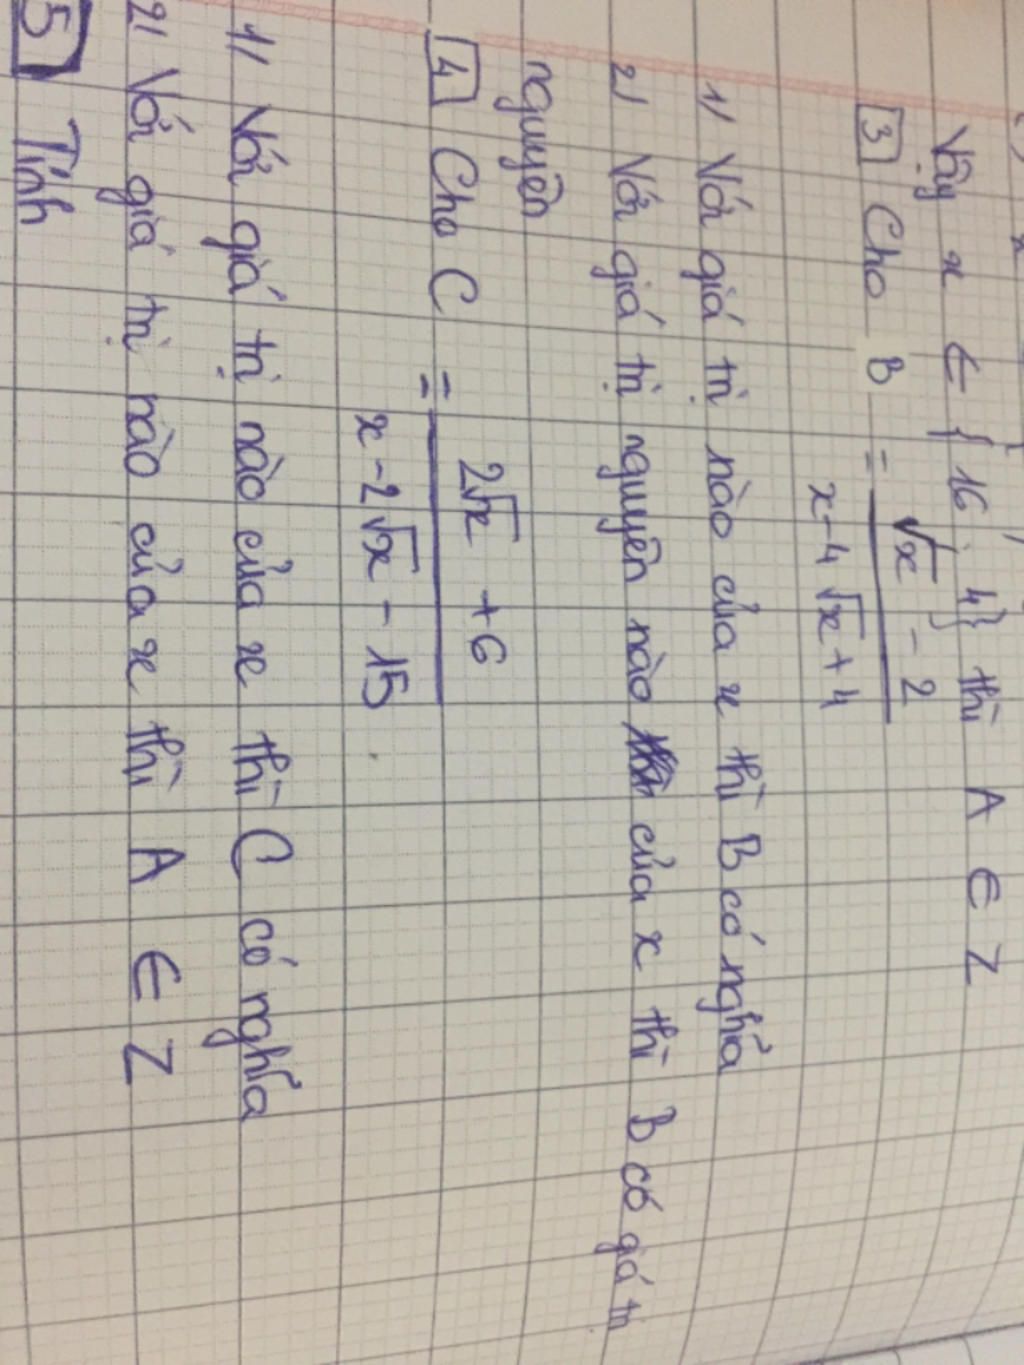 Vậy x ∈ {16; 4} thì A ∈ Z
3 Cho B = (√x - 2)/(x - 4√x + 4)
1/ Với giá trị nào của x thì B có nghĩa
2/ Với giá trị nguyên nào của x thì B có giá trị
nguyên
4 Cho C = (2√x + 6)/(x - 2√x - 15).
1/ Với giá trị nào của x thì C có nghĩa
2/ Với giá trị nào của x thì A ∈ Z
5 Tính